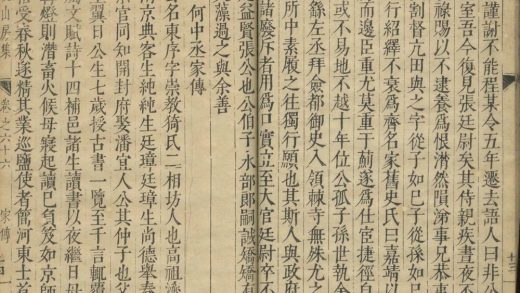 十三
謹謝不能程某令五年遷去語人曰非公
室吾今復見張廷尉矣其侍親疾晝夜不
祿陽以不逮養爲恨潸然隕涕事兄恭
割督亢田與之字從子如已子從孫如已
行紹繹不衰爲齊名家舊史氏曰嘉靖以
而邊臣重尤莫重于薊遂爲仕宦捷徑自
或不易地不越十年位公孤子孫世執金
繇左丞拜僉都御史入領棘寺無殊尤之
所中素履之往獨行願也其斯人與政府
諸廢斥者用爲口實立至大官廷尉卒不
益賢張公也公伯子水部郎嗣誠矯矯有
藻過之與余善
何中丞家傳
名東序字崇敎猗氏二相坊人也高祖
南京典客生純純生廷璋廷璋生尚德舉
官同知開封府娶潘宜人公其仲子也
翼日公生七歲授古書一覽至千言輒
爲文賦詩十四補邑諸生讀書以夜繼日母
燈則潛畜火候母寢起讀已負笈如京師
受春秋遂精其業巡鹽使者館河東士首
山居集 卷之六十六 家傳